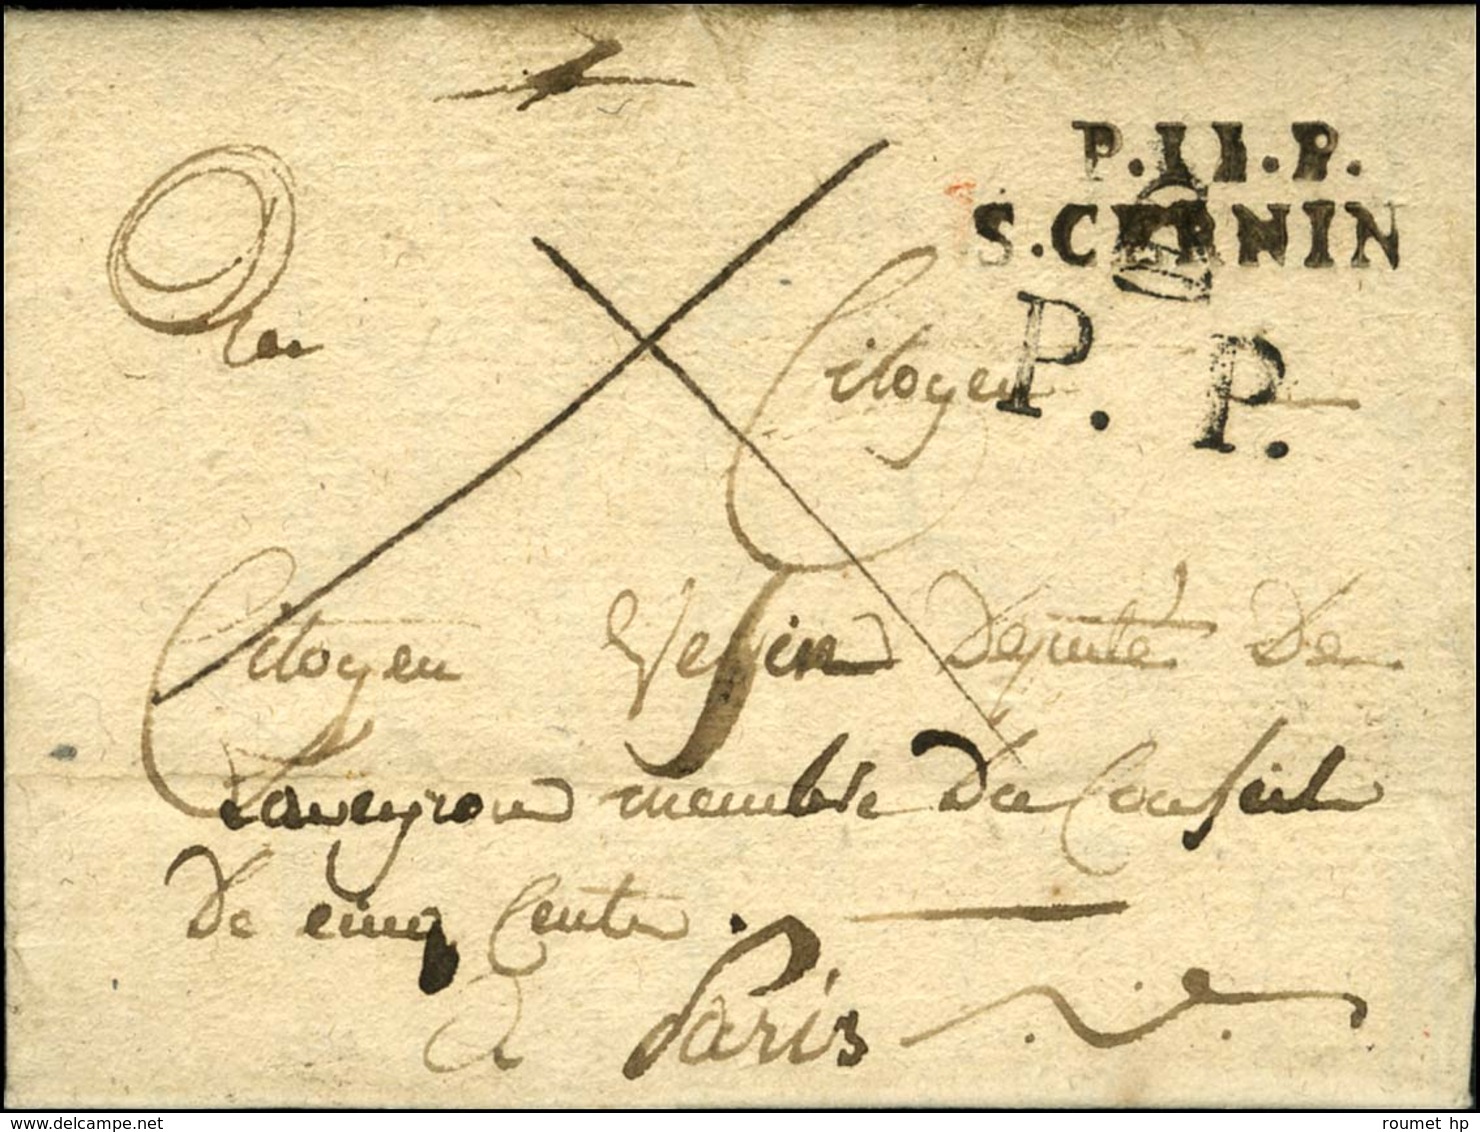 P.11.P.
S.CERNIN
P. P.
Au
Citoyen
Citoyen Vesin Deputé De
Laveyron membre Du Conseil
De cinq Cents.
a Paris
roumet hp